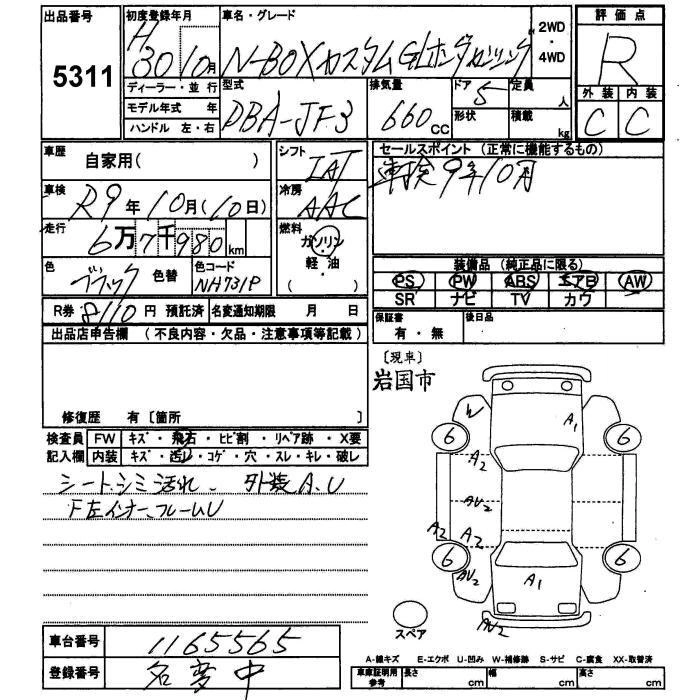 出品番号
5311
初度登録年月
H30 10月
車名・グレード
N-BOXカスタム G・Lホンダセンシング
2WD
・
4WD
評価点
R
外装 内装
C C
ディーラー・並行
モデル年式 年
ハンドル 左・右
型式
DBA-JF3
排気量
660cc
ドア 5
形状
定員 人
積載 kg
車歴
自家用( )
シフト
IAT
セールスポイント (正常に機能するもの)
車検9年10月
車検
R9年10月(10日)
冷房
AAC
走行
6万7千980km
燃料
ガソリン
軽・油
( )
色
ブラック
色替
色コード
NH731P
装備品 (純正品に限る)
PS PW ABS エアB AW
SR ナビ TV カワ
R券 8110円 預託済
名変通期限 月 日
保証書
有・無
後日品
出品店申告欄 (不良内容・欠品・注意事項等記載)
修復歴 有〔箇所 〕
〔現車〕
岩国市
検査員
記入欄
FW キズ・飛石・ヒビ割・リペア跡・X要
内装 キズ・汚レ・コゲ・穴・スレ・キレ・破レ
シート、シミ汚れ、外装A.U
F左インナーフレームU
W
A1
6
6
A2
AU2
A2
A2
6
6
AU2
A1
AU2
スペア
車台番号
1165565
登録番号
名変中
A-線キズ E-エクボ U-凹み W-補修跡 S-サビ C-腐食 XX-取替済
車庫証明用
参考
長さ cm
幅 cm
高さ cm